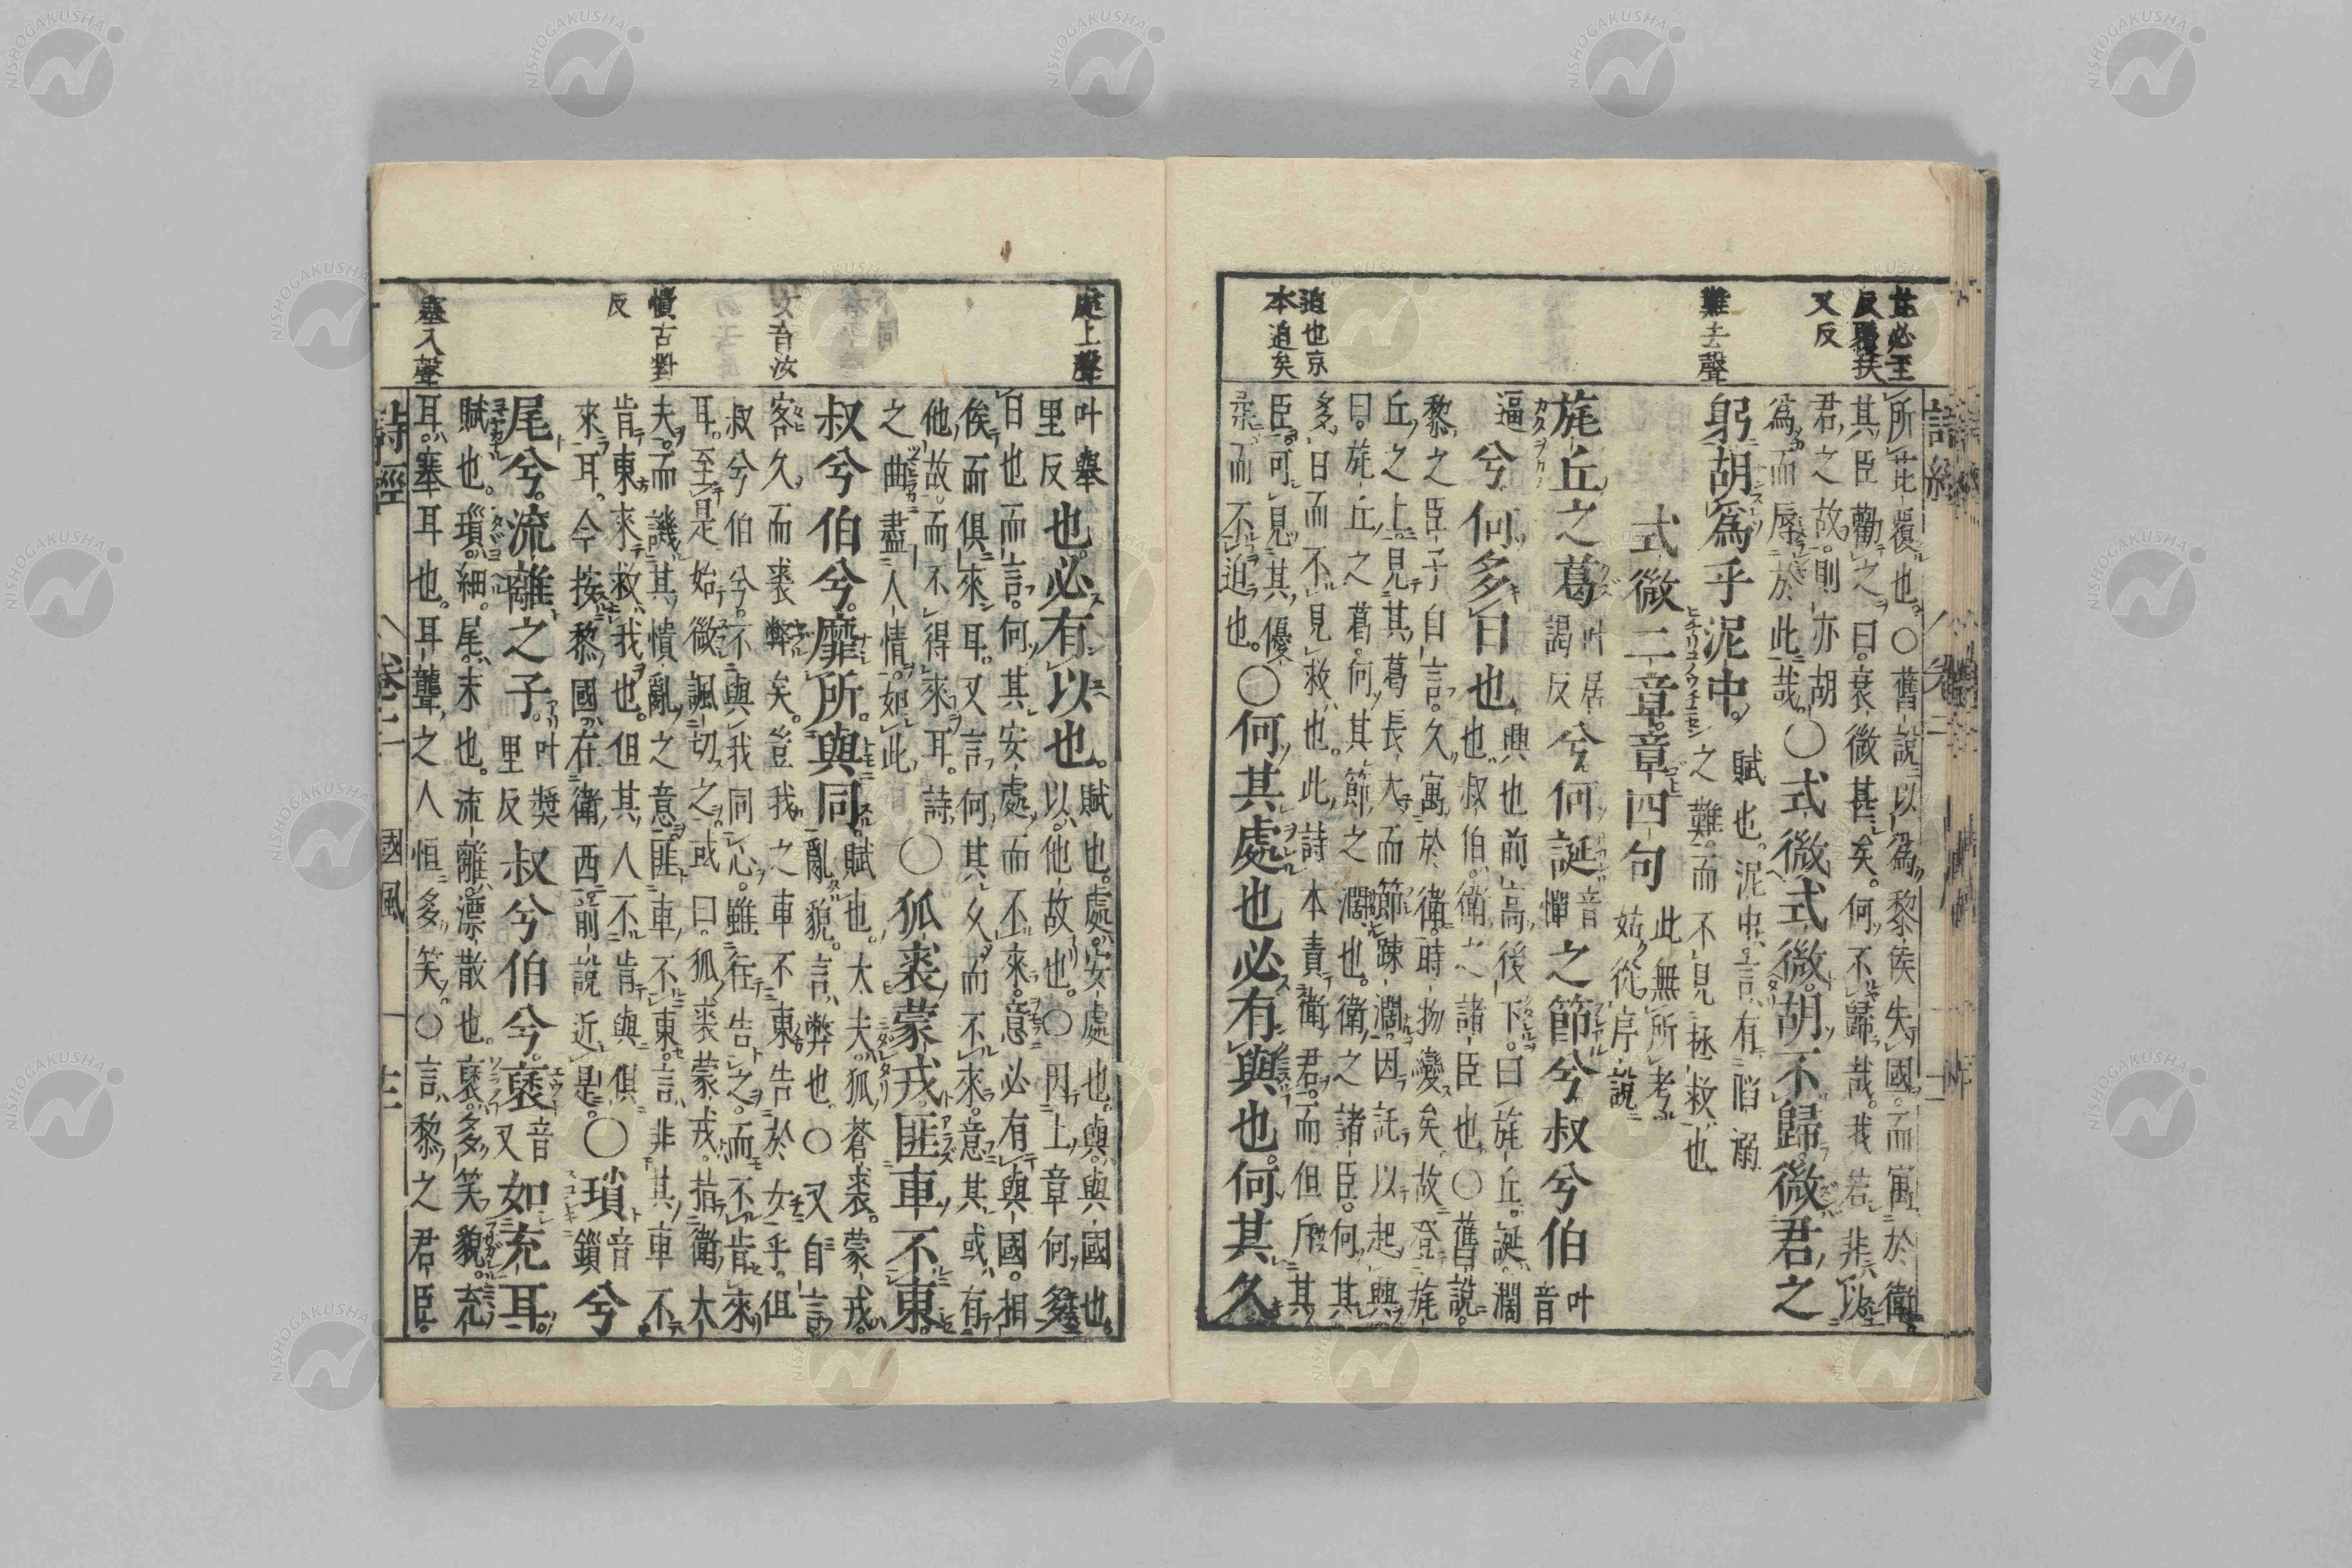 芘必至
反覆扶
又反
難去聲
迫也京
本迫矣
所芘覆也。〇舊説以爲黎侯失國。而寓於衛。
其臣勸之曰。衰微甚矣。何不歸哉。我若非以
君之故。則亦胡
爲而辱於此哉。〇式微式微。胡不歸。微君之
躬胡爲乎泥中。賦也。泥中。言有陷溺
之難。而不見拯救也
式微二章。章四句 此無所考
姑從序説
旄丘之葛叶居謁反兮何誕音憚之節兮叔兮伯叶音
逼兮何多日也。興也。前高後下。曰旄丘。誕。濶
也。叔伯。衛之諸臣也。〇舊説。
黎之臣子自言。久寓於衛。時物變矣。故登旄
丘之上。見其葛長大而節踈濶。因託以起興
曰。旄丘之葛。何其節之濶也。衛之諸臣。何其
多日而不見救也。此詩本責衛君。而但斥其
臣。可見其優
柔而不迫也。〇何其處也必有與也。何其久
處上聲
女音汝
憒古對
反
塞入聲
叶舉里反也。必有以也。賦也。處。安處也。與。與國也。
以。他故也。〇因上章何多
日也而言。何其安處而不來。意必有與國。相
俟而俱來耳。又言。何其久而不來。意其或有
他故而不得來耳。詩
之曲盡人情。如此。〇狐裘蒙戎。匪車不東。
叔兮伯兮。靡所與同。賦也。大夫狐蒼裘。蒙戎。
亂貌。言弊也。〇又自言
客久而裘弊矣。豈我之車不東告於女乎。但
叔兮伯兮。不與我同心。雖往告之。而不肯來
耳。至是始微諷切之。或曰。狐裘蒙戎。指衛大
夫。而譏其憒亂之意。匪車不東。言非其車不
肯東來救我也。但其人不肯與俱
來耳。今按黎國在衛西。前説近是。〇瑣音鎖兮
尾兮。流離之子。叶奬里反叔兮伯兮。褎音又如充耳。
賦也。瑣。細。尾。末也。流離。漂散也。褎。多笑貌。充
耳。塞耳也。耳聾之人恒多笑。〇言黎之君臣。
詩經 卷二 國風 十三